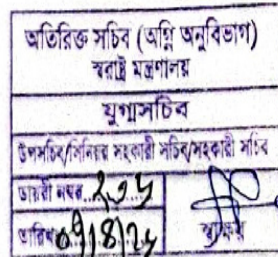 অতিরিক্ত সচিব (অগ্নি অনুবিভাগ)
স্বরাষ্ট্র মন্ত্রণালয়
যুগ্মসচিব
উপসচিব/সিনিয়র সহকারী সচিব/সহকারী সচিব
ডায়রী নম্বর
তারিখ
স্বাক্ষর